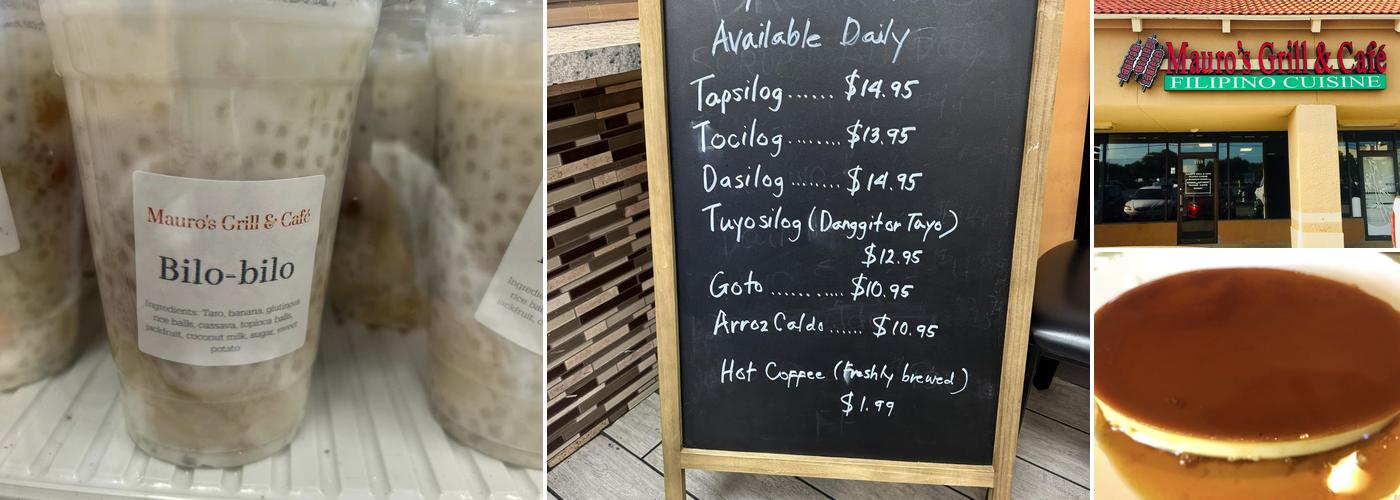 Mauro's Grill & Café
Bilo-bilo
Ingredients: Taro, banana, glutinous
rice balls, cassava, topioca balls,
jackfruit, coconut milk, sugar, sweet
potato
Available Daily
Tapsilog...... $14.95
Tocilog........ $13.95
Dasilog ........ $14.95
Tuyosilog (Danggit or Tayo)
$12.95
Goto ............ $10.95
Arroz Caldo...... $10.95
Hot Coffee (freshly brewed)
$1.99
Mauro's Grill & Café
FILIPINO CUISINE